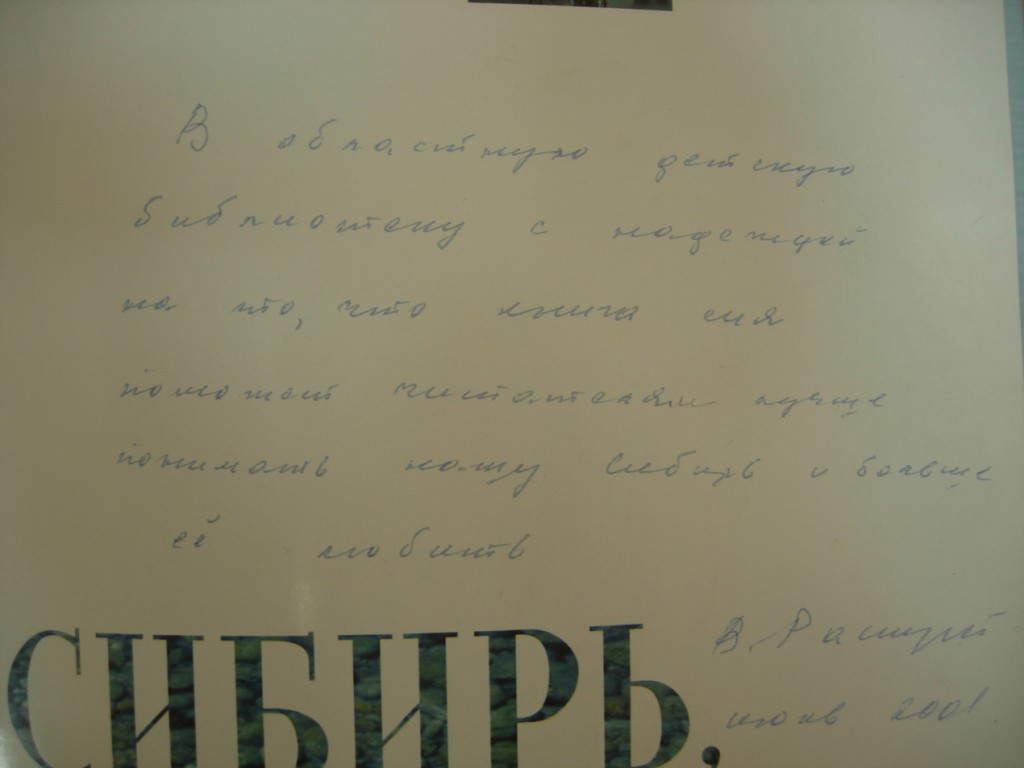 В областную детскую
библиотеку с надеждой
на то, что книга сия
поможет читателям лучше
понимать нашу Сибирь и больше
её любить
В. Распутин
июнь 2001
СИБИРЬ,